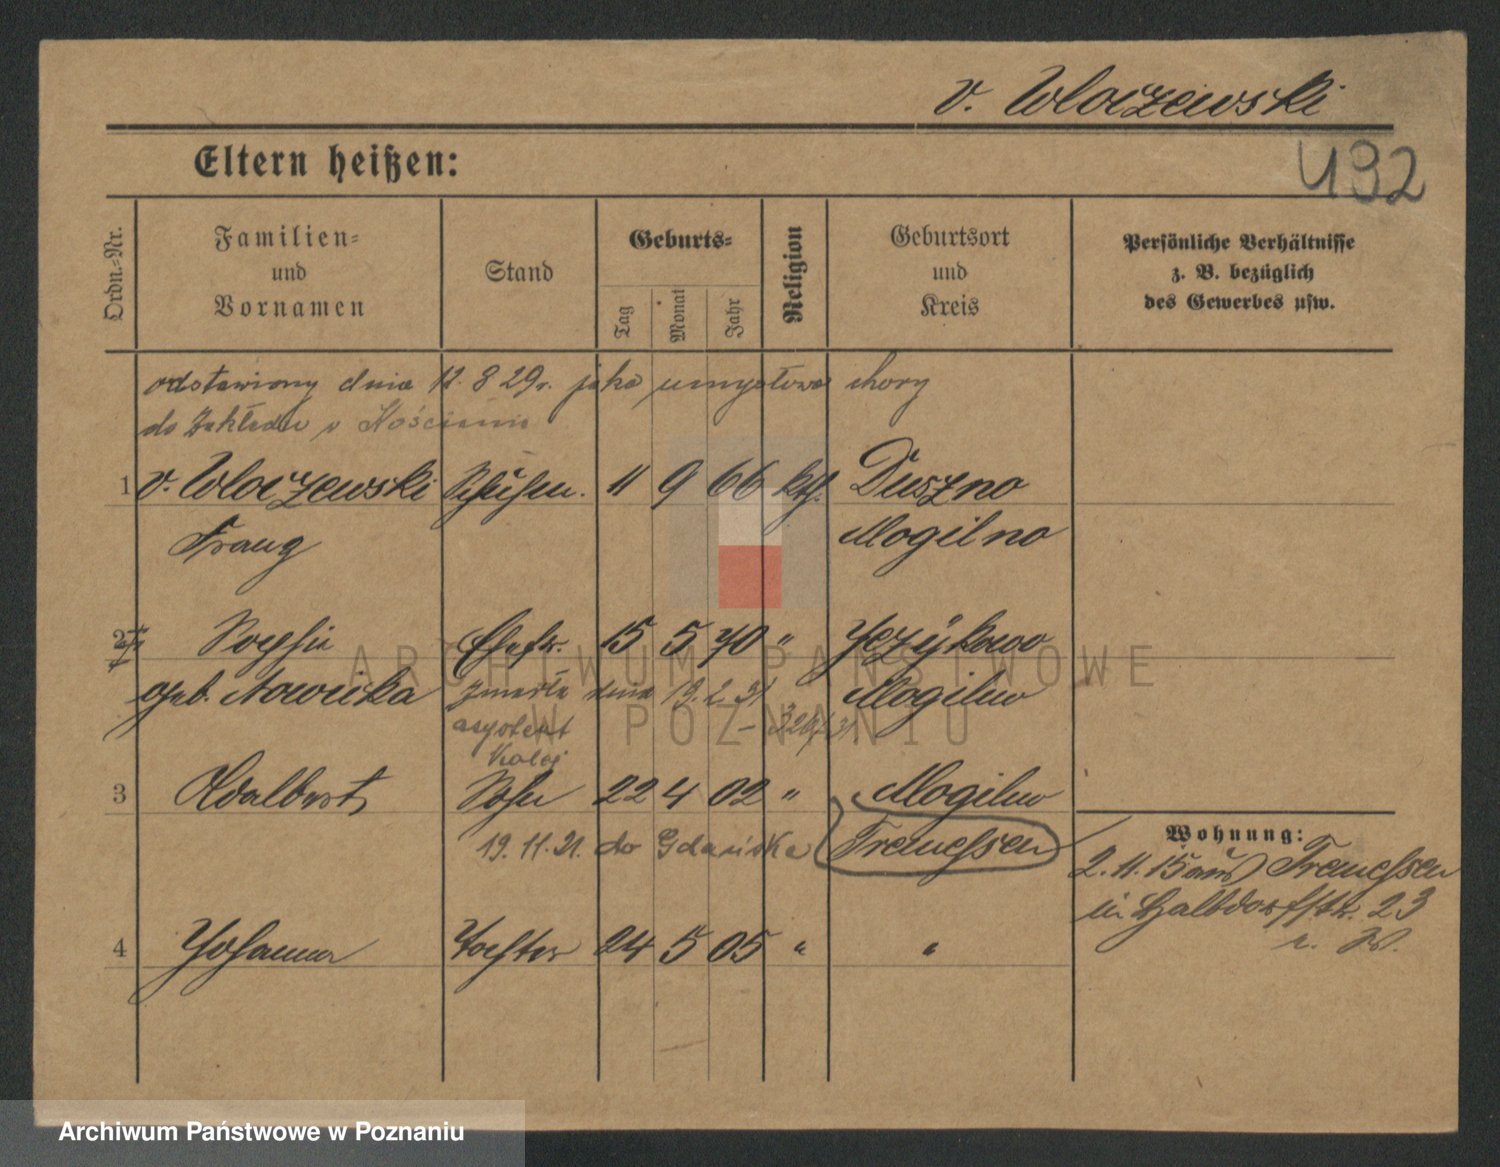 v. Wloczewski
Eltern heißen:
492
Ordn.-Nr.
Familien-
und
Vornamen
Stand
Geburts-
Tag
Monat
Jahr
Religion
Geburtsort
und
Kreis
Persönliche Verhältnisse
z. B. bezüglich
des Gewerbes usw.
odstawiony dnia 12. 8 29 r. jako umysłowo chory
do Zakładu w Kościanie
1 v. Wloczewski 11 9 66 kth. Duszno
Franz Mogilno
2 Sophie Ehefr. 15 5 70 " Jezýkowo
geb. Nowicka zmarła dnia 19. 2. 31 Mogilno
asystent
kolej
3 Adalbert Sohn 22 4 02 " Mogilno
19. 11. 21. do Gdańska Tremessen
Wohnung:
2. 11. 15 aus Tremessen
in Halbdorfstr. 23
4 Johanna Tochter 24 5 05 " "
ARCHIWUM PAŃSTWOWE
W POZNANIU
Archiwum Państwowe w Poznaniu